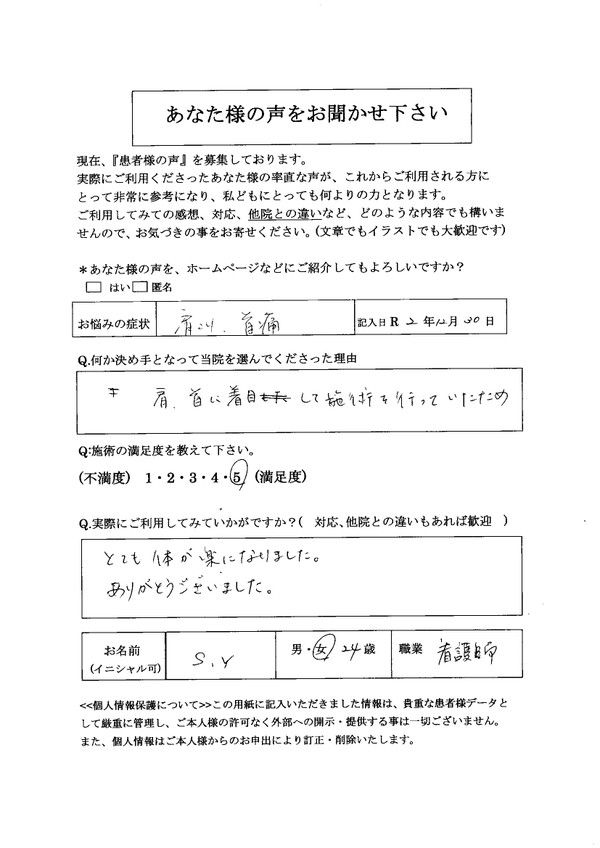 あなた様の声をお聞かせ下さい
現在、『患者様の声』を募集しております。
実際にご利用くださったあなた様の率直な声が、これからご利用される方に
とって非常に参考になり、私どもにとっても何よりの力となります。
ご利用してみての感想、対応、他院との違いなど、どのような内容でも構いま
せんので、お気づきの事をお寄せください。(文章でもイラストでも大歓迎です)
＊あなた様の声を、ホームページなどにご紹介してもよろしいですか？
□ はい □ 匿名
お悩みの症状 肩こり、首痛 記入日 R 2 年 12 月 30 日
Q.何か決め手となって当院を選んでくださった理由
肩、首に着目して施術を行っていたため
Q:施術の満足度を教えて下さい。
(不満度) 1・2・3・4・5 (満足度)
Q.実際にご利用してみていかがですか？( 対応、他院との違いもあれば歓迎 )
とても体が楽になりました。
ありがとうございました。
お名前 (イニシャル可) S, Y 男・女 24 歳 職業 看護師
<<個人情報保護について>>この用紙に記入いただきました情報は、貴重な患者様データと
して厳重に管理し、ご本人様の許可なく外部への開示・提供する事は一切ございません。
また、個人情報はご本人様からのお申出により訂正・削除いたします。